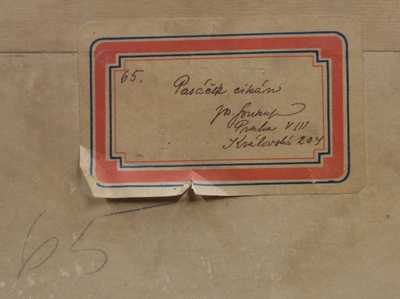 65.
Pasáček cikán
Jos Soukup
Praha VIII
Královská 204
65